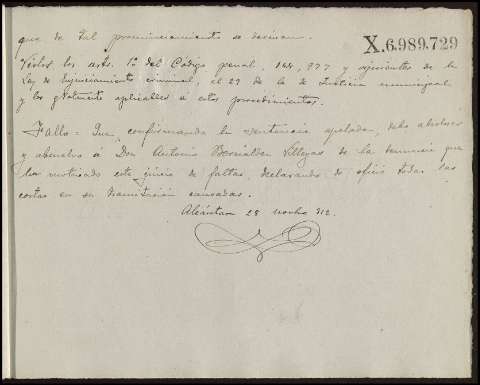 que de tal pronunciamiento se derivan.
X.6.989.729
Vistos los arts. 1º del Código penal. 144, 977 y siguientes de la
Ley de Enjuiciamiento criminal, el 29 de la de Justicia municipal
y los pertinentes aplicables á estos procedimientos.
Fallo = Que, confirmando la sentencia apelada, debo absolver
y absuelvo á Don Antonio Villegas de la denuncia que
ha motivado este juicio de faltas, declarando de oficio todas las
costas en su tramitación causadas.
Alcántara 28 912.